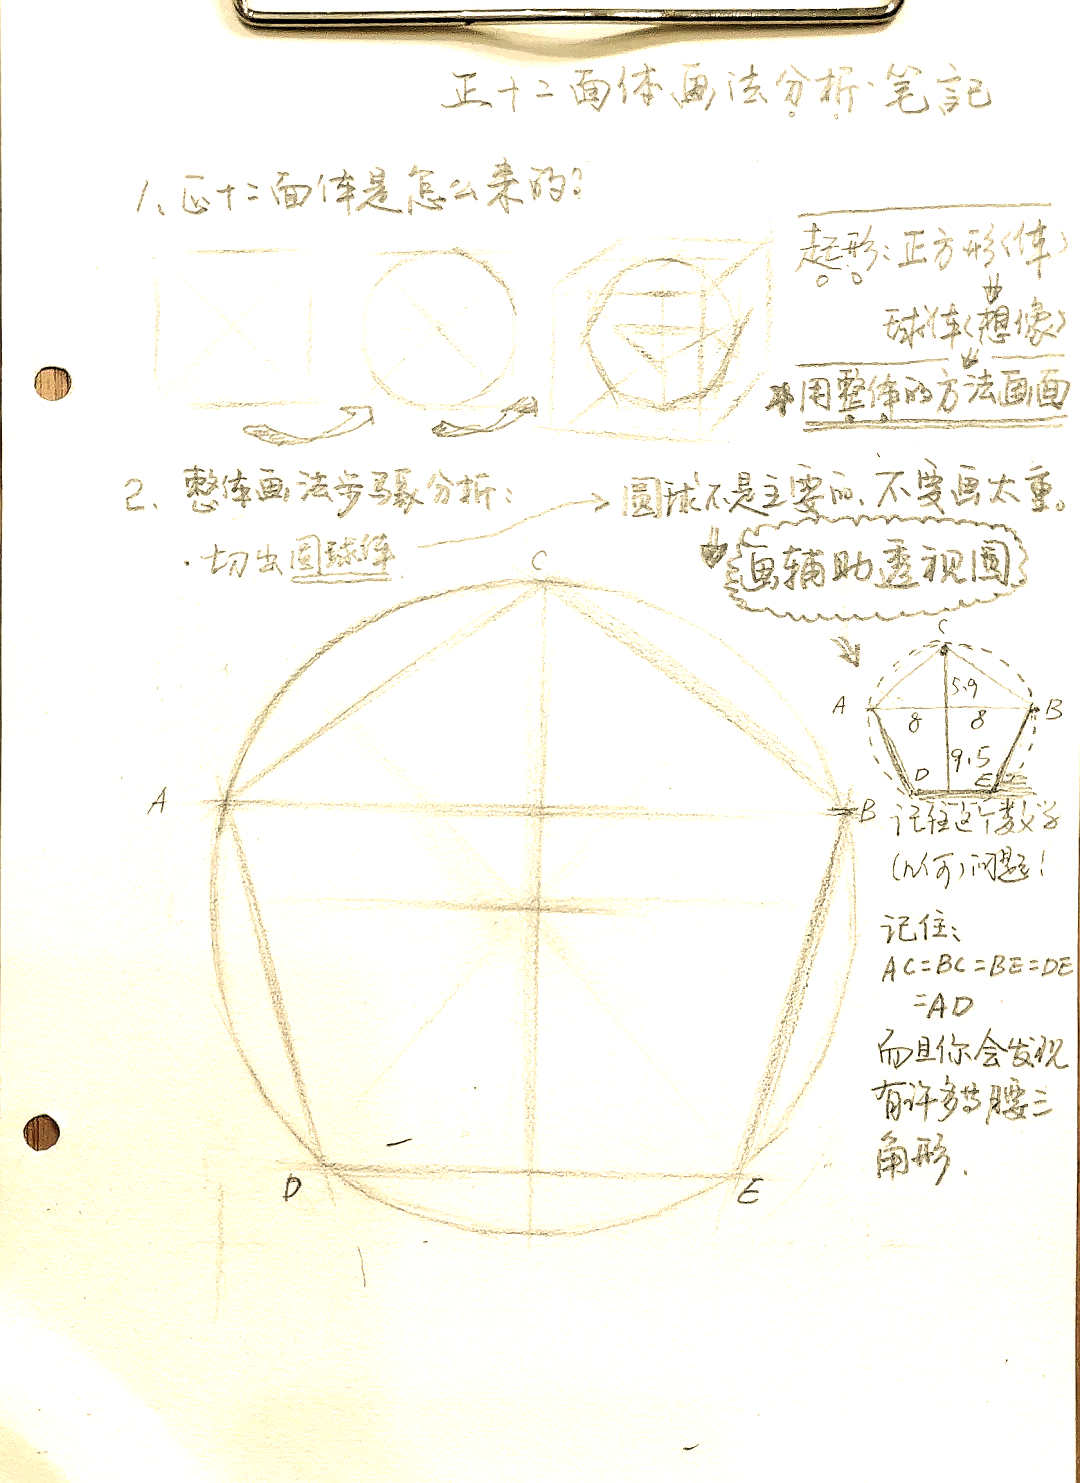 正十二面体画法分析·笔記
1、正十二面体是怎么来的?
起形:正方形(体)
球体(想像)
用整体的方法画面
2、整体画法步骤分析:
圆球不是主要的、不要画太重。
·切出圆球体
画辅助透视图
C
C
5.9
A
B
8
8
D
9.5
E
A
B
记住这个数学
(几何)问题!
记住:
AC=BC=BE=DE
=AD
而且你会发现
有许多等腰三
角形.
D
E